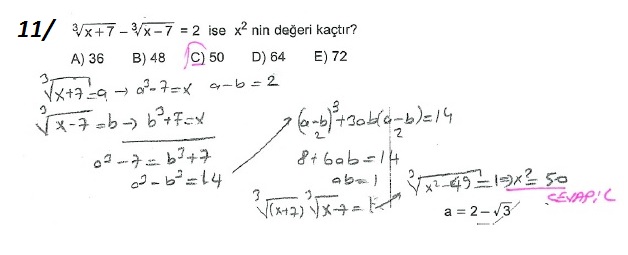 11/ ∛x+7 − ∛x−7 = 2 ise x² nin değeri kaçtır?
A) 36 B) 48 C) 50 D) 64 E) 72
∛x+7 = a → a³-7=x a-b=2
∛x-7 = b → b³+7=x
a³-7=b³+7
a³-b³=14
(a-b)³+3ab(a-b)=14
2 2
8+6ab=14
ab=1
∛(x+7) ∛x-7 = 1
∛x²-49 = 1 ⇒ x²=50
CEVAP: C
a = 2 − √3